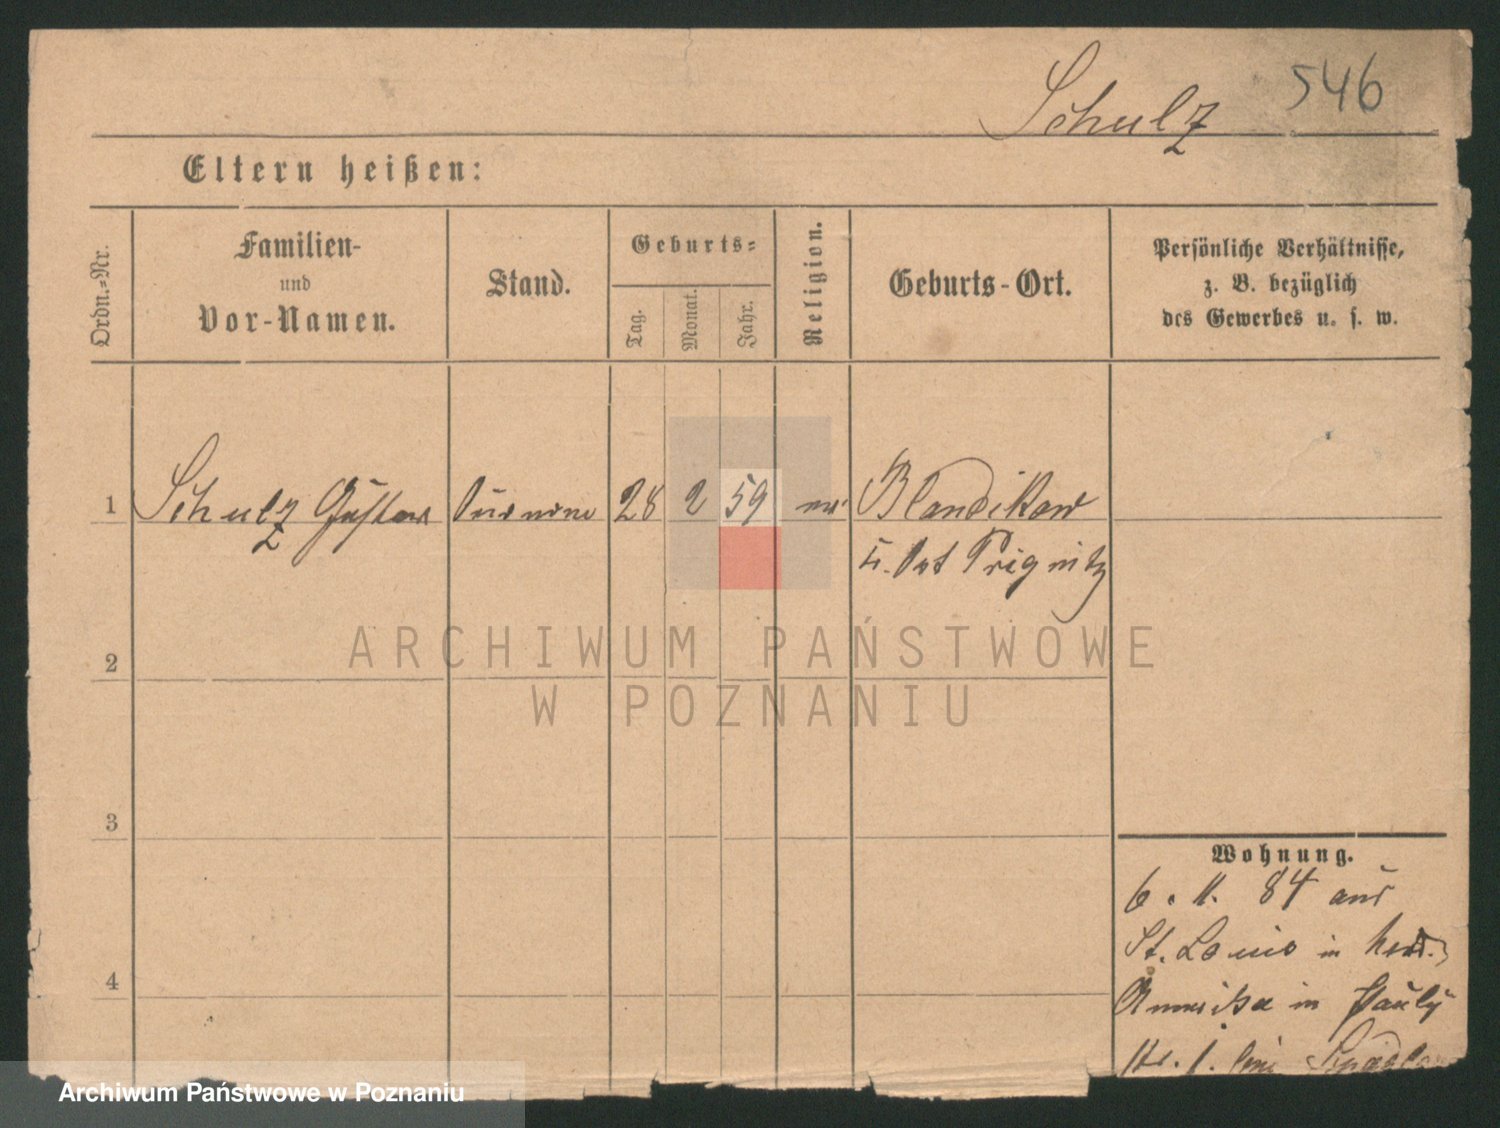 Schulz 546
Eltern heißen:
Ordn.-Nr.
Familien-
und
Vor-Namen.
Stand.
Geburts-
Tag.
Monat.
Jahr.
Religion.
Geburts-Ort.
Persönliche Verhältnisse,
z. B. bezüglich
des Gewerbes u. s. w.
1 Schulz Gustav 28 2 59 Blandikow
Ost Prignitz
2
3
4
Wohnung.
6. 11. 84 aus
St. Louis in Nord.
Amerika in Pauly
Str. 1. bei
ARCHIWUM PAŃSTWOWE
W POZNANIU
Archiwum Państwowe w Poznaniu